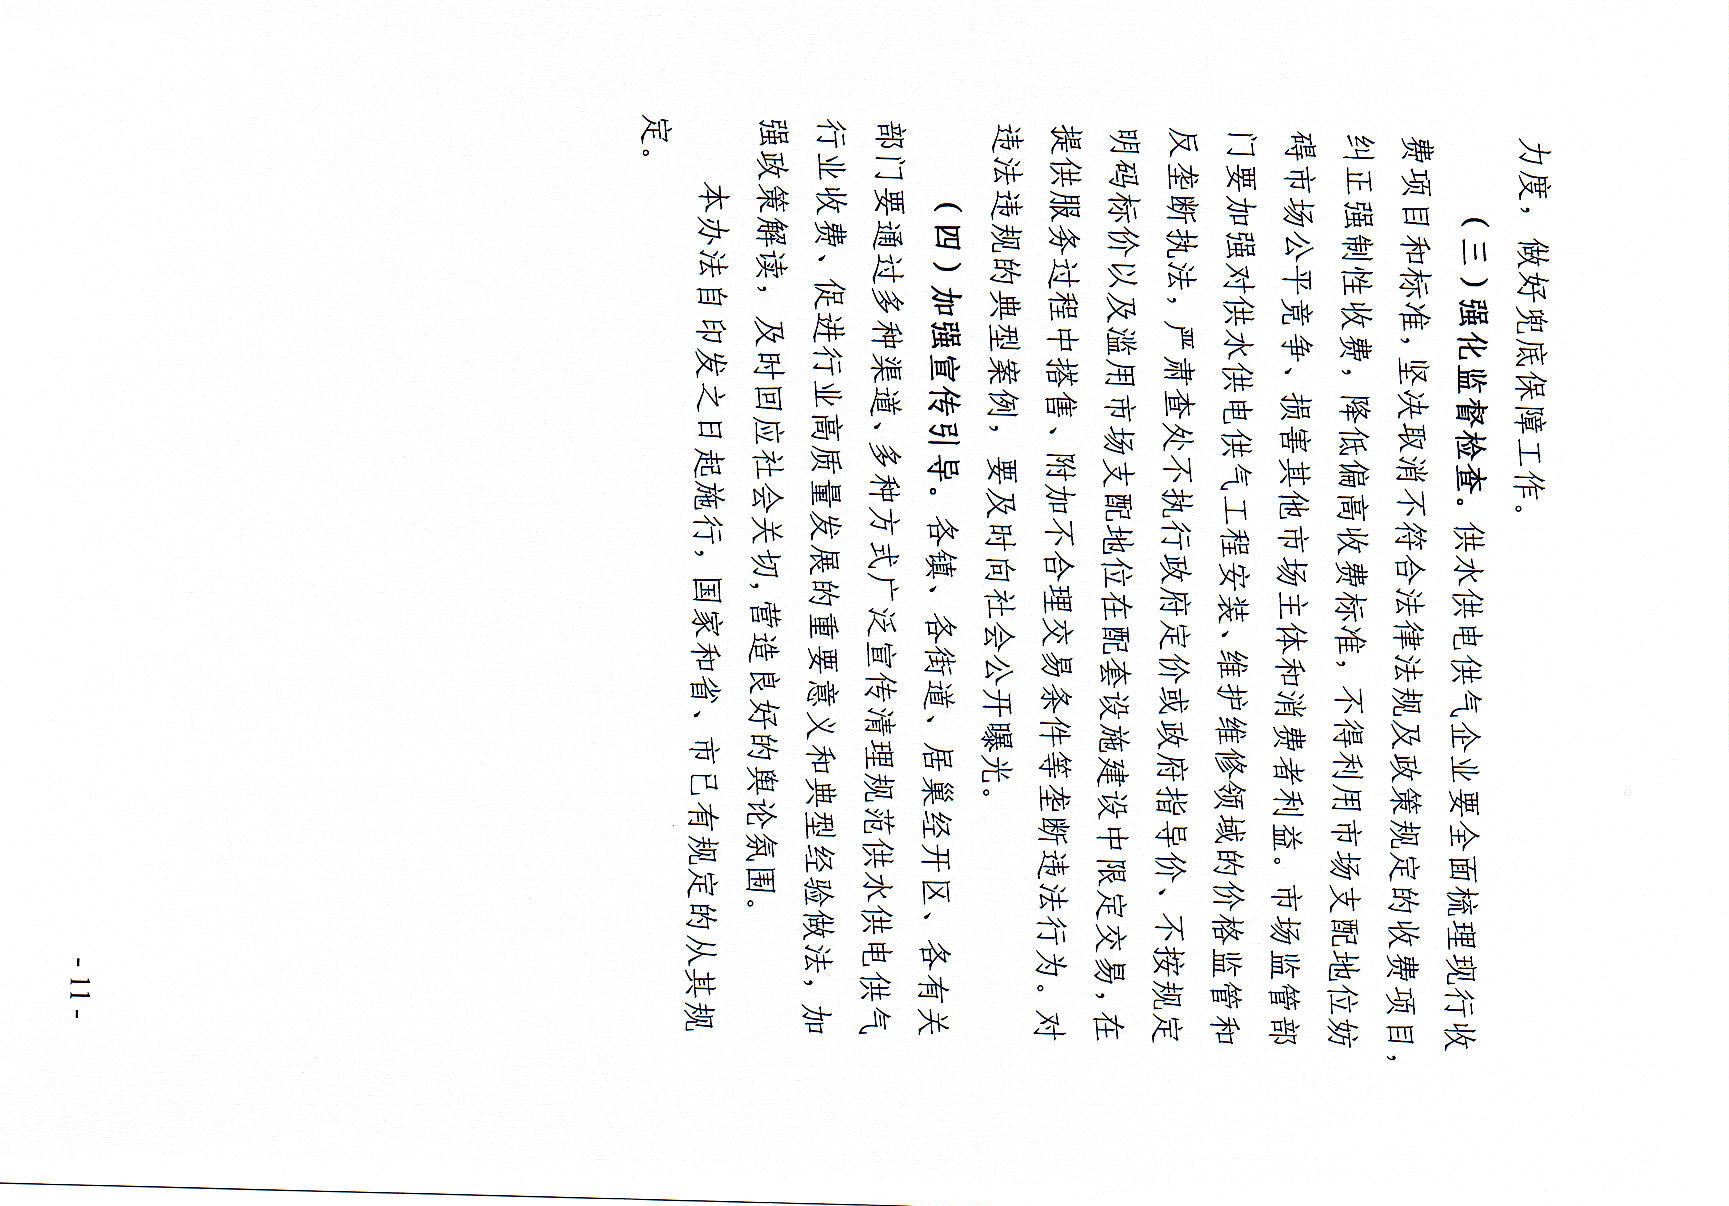 力度，做好兜底保障工作。
（三）强化监督检查。供水供电供气企业要全面梳理现行收
费项目和标准，坚决取消不符合法律法规及政策规定的收费项目，
纠正强制性收费，降低偏高收费标准，不得利用市场支配地位妨
碍市场公平竞争、损害其他市场主体和消费者利益。市场监管部
门要加强对供水供电供气工程安装、维护维修领域的价格监管和
反垄断执法，严肃查处不执行政府定价或政府指导价、不按规定
明码标价以及滥用市场支配地位在配套设施建设中限定交易，在
提供服务过程中搭售、附加不合理交易条件等垄断违法行为。对
违法违规的典型案例，要及时向社会公开曝光。
（四）加强宣传引导。各镇、各街道、居巢经开区、各有关
部门要通过多种渠道、多种方式广泛宣传清理规范供水供电供气
行业收费、促进行业高质量发展的重要意义和典型经验做法，加
强政策解读，及时回应社会关切，营造良好的舆论氛围。
本办法自印发之日起施行，国家和省、市已有规定的从其规
定。
- 11 -